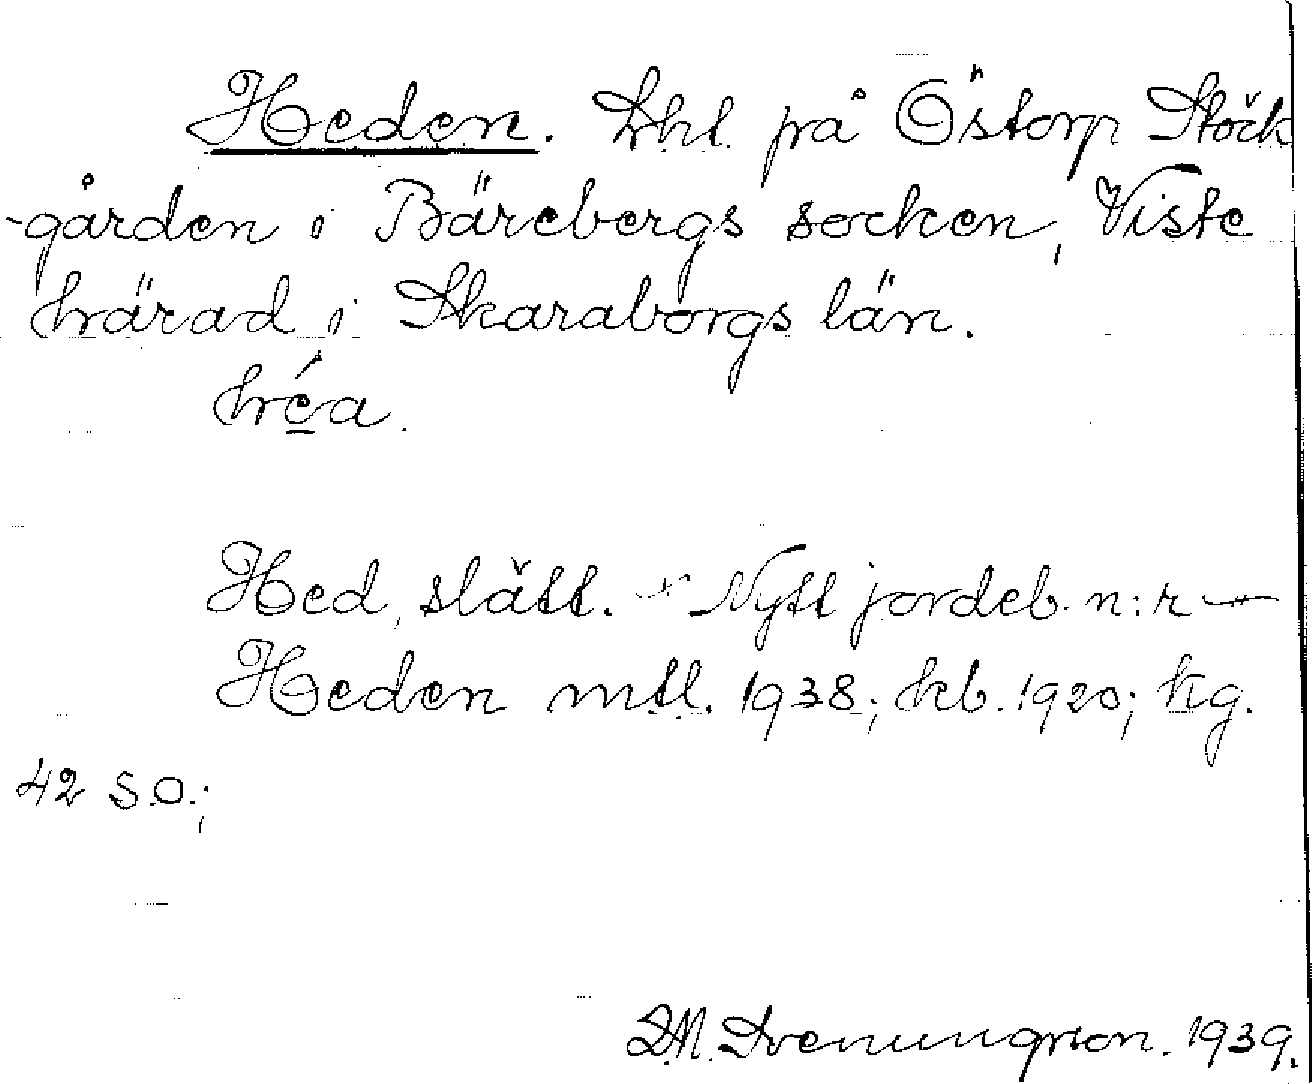 Heden. Lht. på Östorp Stöck
-gården i Bärebergs socken, Viste
härad i Skaraborgs län.
héa.
Hed, slätt. - Nytt jordeb. n:r -
Heden mtl. 1938; kb. 1920; kg.
42 S.O.;
D.M. Svenungsson. 1939.